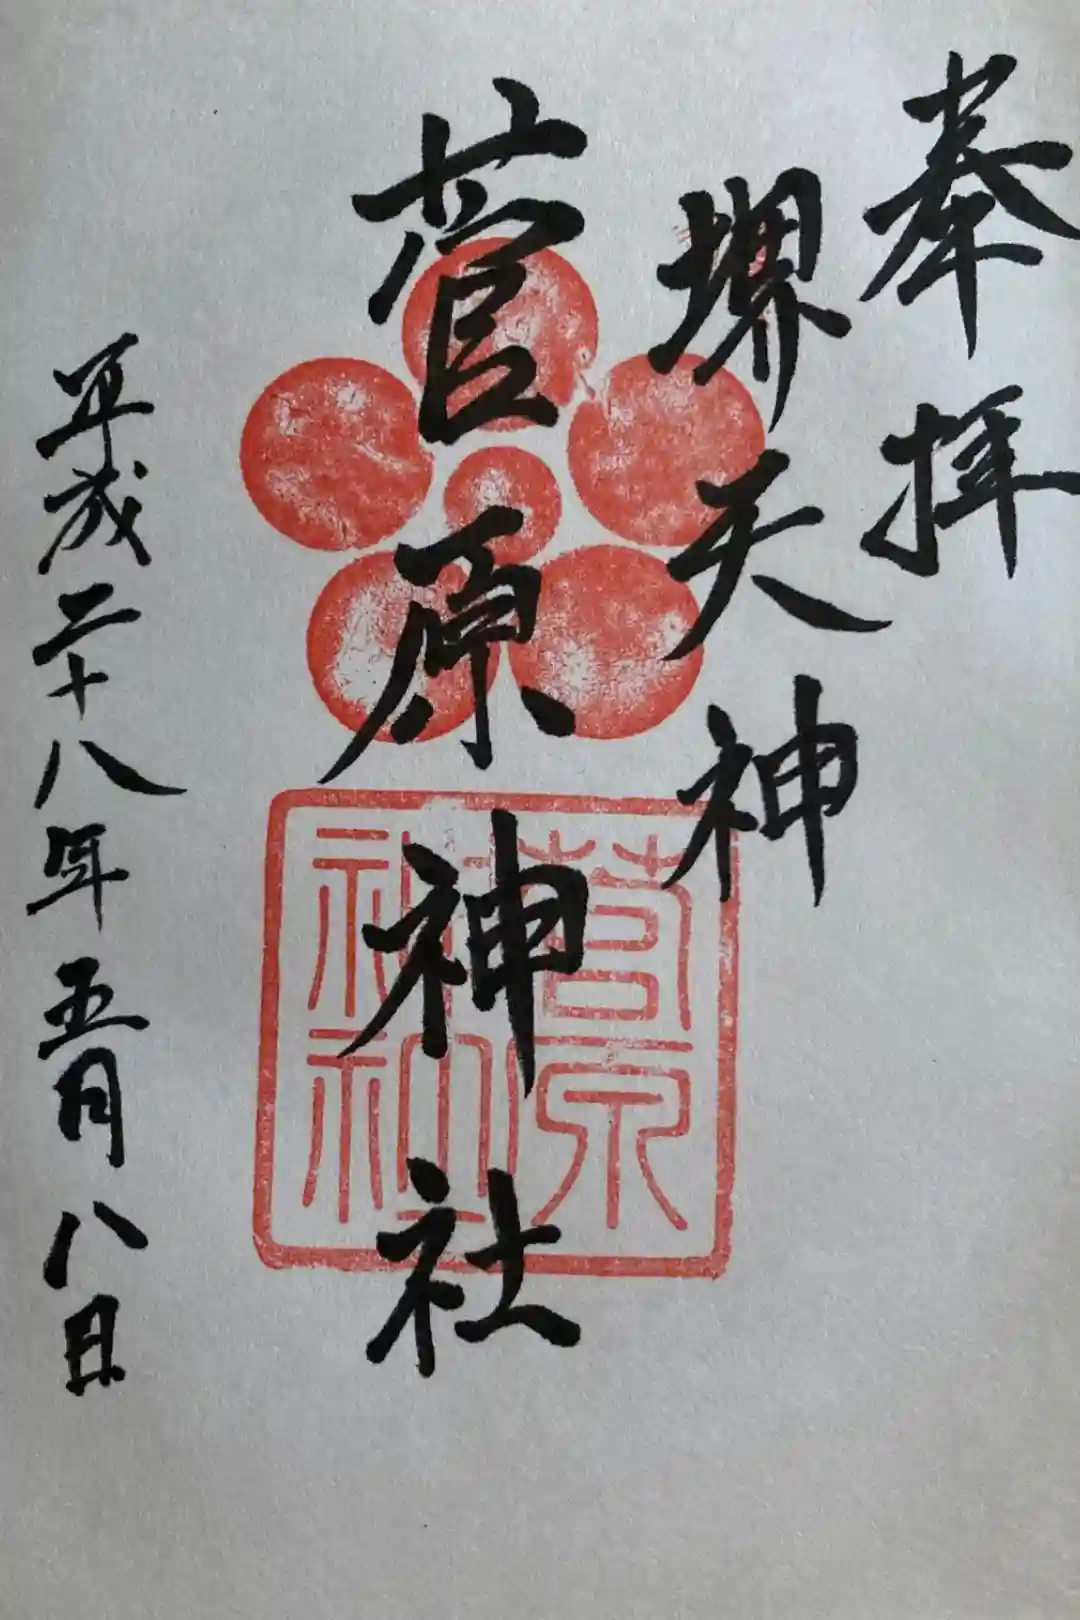 奉拝
堺天神
菅原神社
平成二十八年五月八日
菅原
神社